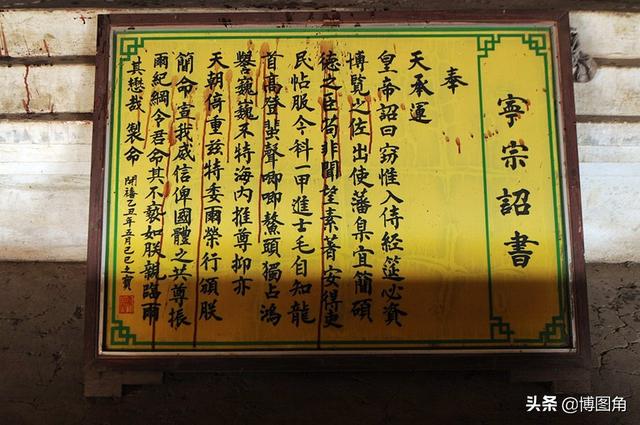 寧宗詔書
奉
天承運
皇帝詔曰窈惟入侍經筵必資
博覽之佐出使潘臬宜簡碩
德之臣苟非聞望素著安得吏
民帖服今科一甲進士毛自知龍
首高登蜚聲唧唧鰲頭獨占鴻
譽巍巍不特海内推尊抑亦
天朝倚重茲特委爾榮行頒朕
簡命宣我威信俾國體之共尊振
爾紀綱令君命其不褻如朕親臨爾
其懋哉 製命 開禧乙丑年五月己巳之寶
头条 @博图角